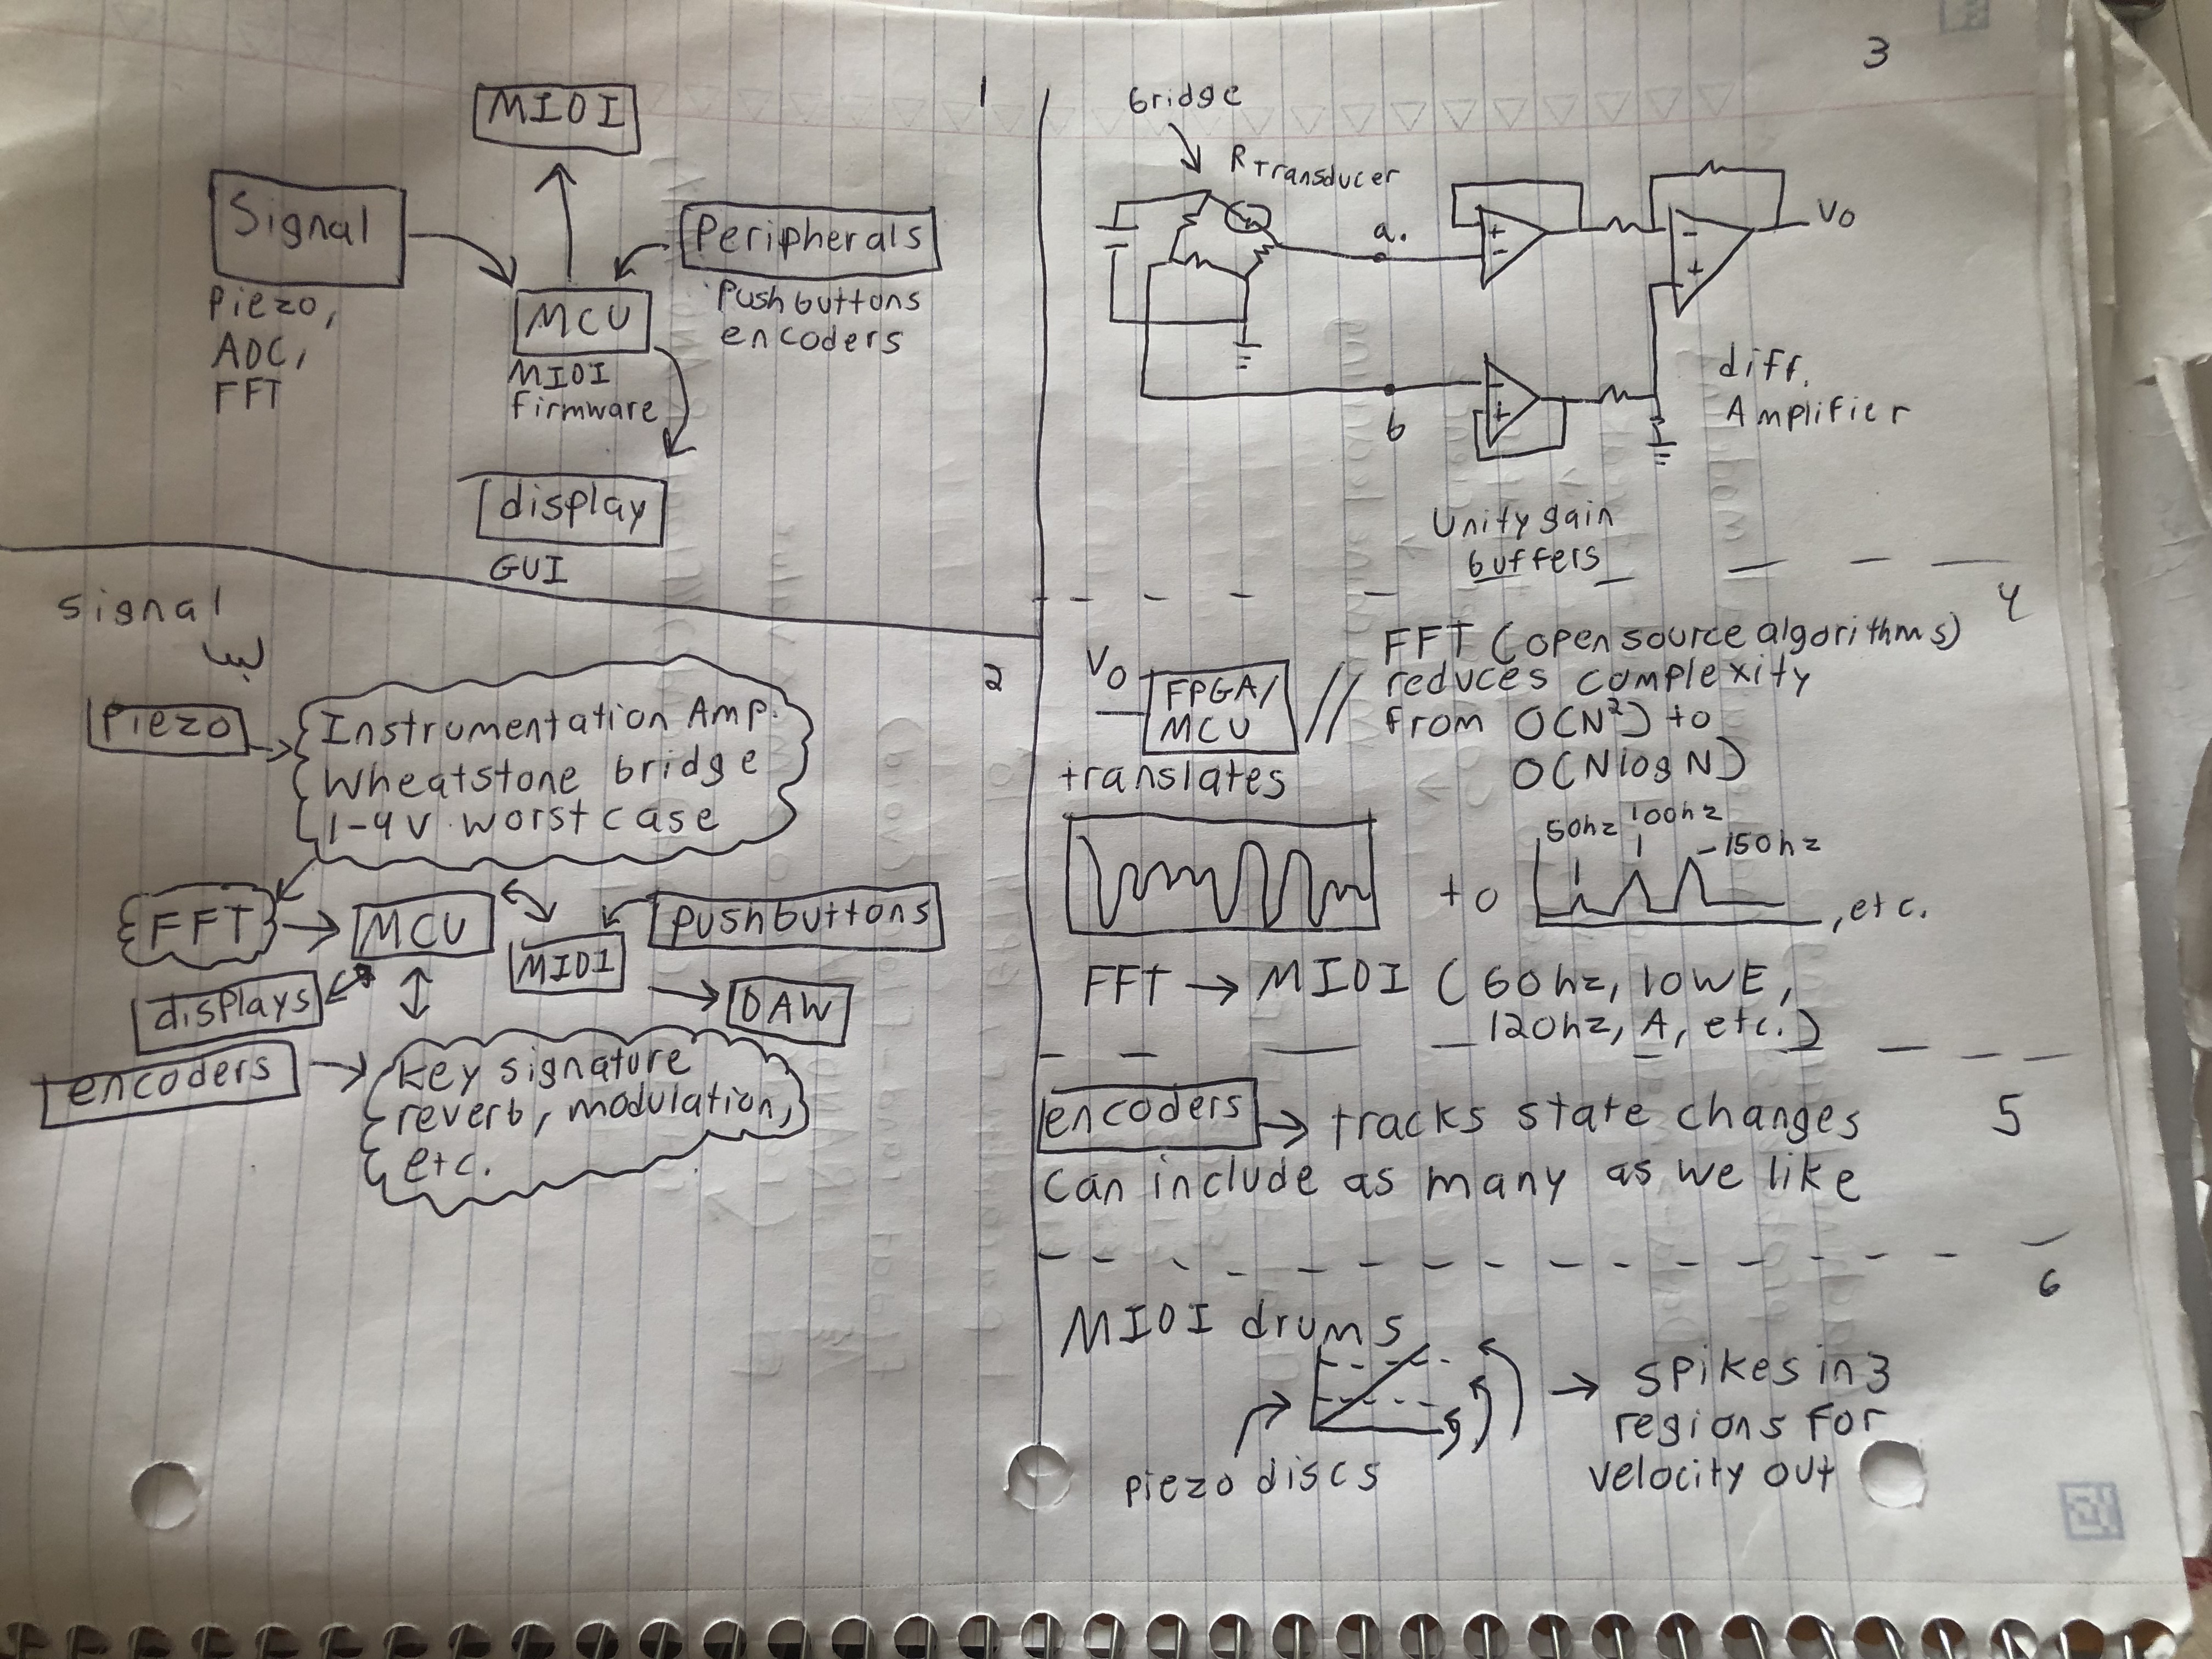 1
MIDI
Signal
Piezo,
ADC,
FFT
Peripherals
Pushbuttons
encoders
MCU
MIDI
firmware
display
GUI
signal
2
Piezo
Instrumentation Amp.
Wheatstone bridge
1-4V worst case
FFT
MCU
MIDI
pushbuttons
displays
DAW
encoders
key signature
reverb, modulation,
etc.
3
bridge
R Transducer
a.
+
-
-
+
Vo
b
-
+
diff.
Amplifier
Unity gain
buffers
4
Vo
FPGA/
MCU
//
FFT (open source algorithms)
reduces complexity
from O(N²) to
O(NlogN)
translates
to
50hz 100hz
-150hz
, etc.
FFT → MIDI (60hz, low E,
120hz, A, etc.)
5
encoders → tracks state changes
can include as many as we like
6
MIDI drums
piezo discs
→ spikes in 3
regions for
velocity out